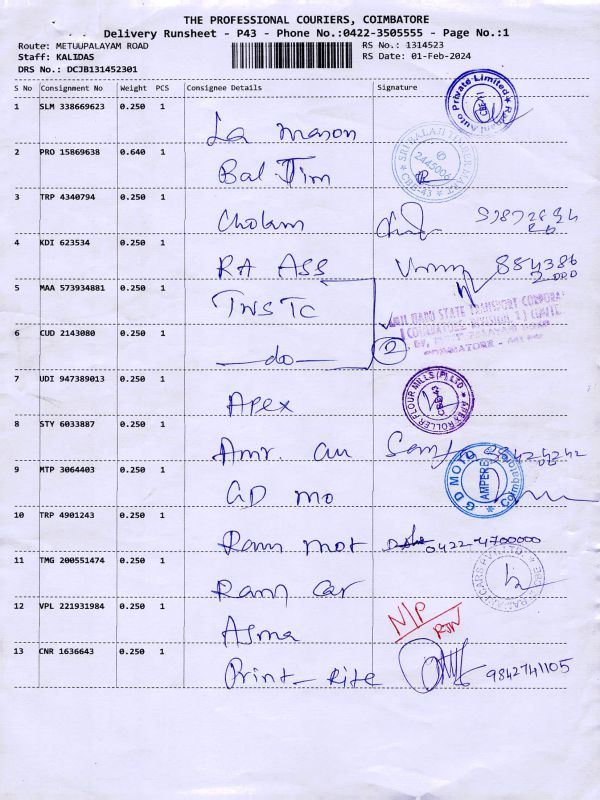 THE PROFESSIONAL COURIERS, COIMBATORE
Delivery Runsheet - P43 - Phone No.:0422-3505555 - Page No.:1
Route: METUUPALAYAM ROAD
RS No.: 1314523
Staff: KALIDAS
RS Date: 01-Feb-2024
DRS No.: DCJB131452301
S No Consignment No Weight PCS Consignee Details Signature
1 SLM 338669623 0.250 1
La mason
Auto Private Limited
2 PRO 15869638 0.640 1
Bal Tim
SRI BALAJI TIMBER MART
2445006
CBE-43
3 TRP 4340794 0.250 1
Cholam
4 KDI 623534 0.250 1
RA ASS
884386
5 MAA 573934881 0.250 1
TNSTC
STATE TRANSPORT CORPORA
COIMBATORE DIVISION
6 CUD 2143080 0.250 1
—do—
2
COIMBATORE
7 UDI 947389013 0.250 1
Apex
APEX ROLLER FLOUR MILLS (P) LTD
CBE-43
8 STY 6033887 0.250 1
Amr. au
9 MTP 3064403 0.250 1
GD mo
G D MOTO
AMPERE
Coimbatore
10 TRP 4901243 0.250 1
Ram mot
0422-4700000
11 TMG 200551474 0.250 1
Ram car
CARS PVT. LTD.
12 VPL 221931984 0.250 1
Asma
N/P
RTN
13 CNR 1636643 0.250 1
Print-Rite
9842741105